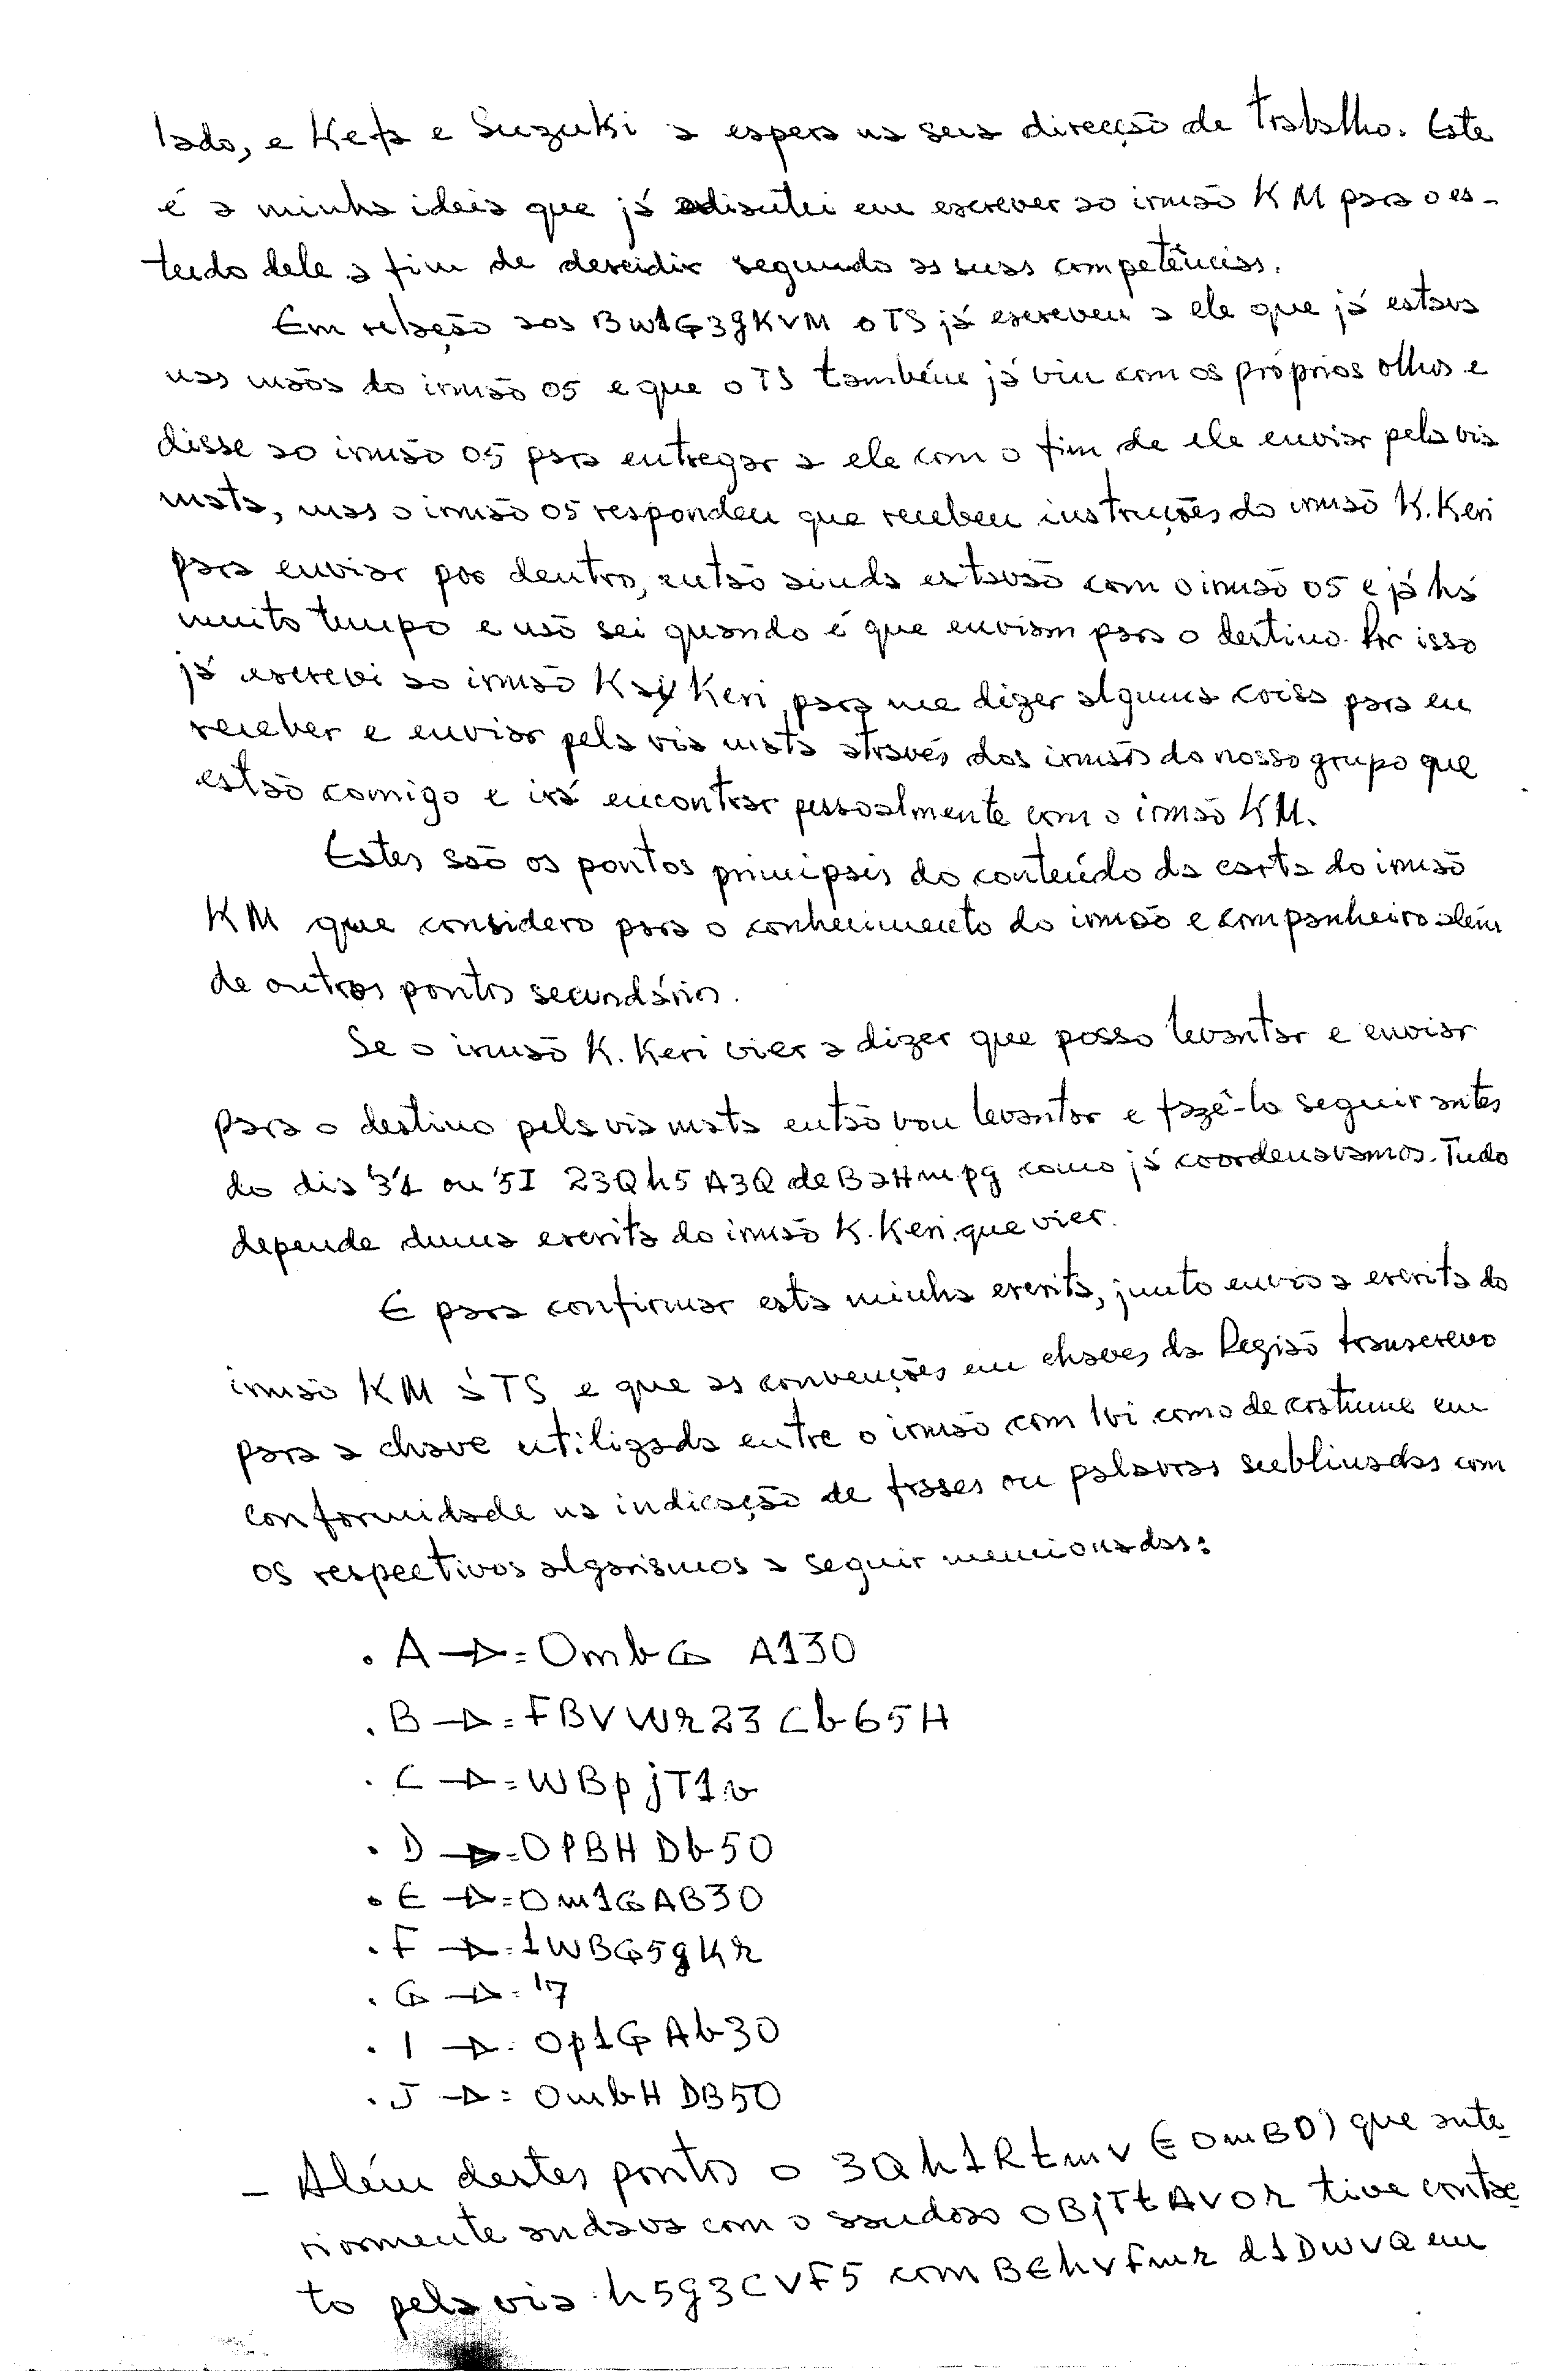 lado, e Keta e Suzuki a espera na sua direcção de Trabalho. Este
é a minha ideia que já em escrever ao irmão KM para o es-
tudo dele a fim de descidir segundo as suas competências.
Em relação aos BW1G3gKVM o TS já escreveu a ele que já estava
nas mãos do irmão 05 e que o TS também já viu com os próprios olhos e
disse ao irmão 05 para entregar a ele com o fim de ele enviar pela via
mata, mas o irmão 05 respondeu que recebeu instruções do irmão K. Keri
para enviar por dentro, então ainda estavão com o irmão 05 e já há
muito tempo e não sei quando é que enviam para o destino. Por isso
já escrevi ao irmão Keri para me dizer alguma coisa para eu
receber e enviar pela via mata através dos irmãos do nosso grupo que
estão comigo e irá encontrar pessoalmente com o irmão KM.
Estes são os pontos principais do conteúdo da carta do irmão
KM que considero para o conhecimento do irmão e companheiro além
de outros pontos secundários.
Se o irmão K. Keri vier a dizer que posso levantar e enviar
para o destino pela via mata então vou levantar e fazê-lo seguir antes
do dia '3'1 ou '5I 23Qh5 A3Q de BaHmpg como já coordenavamos. Tudo
depende duma escrita do irmão K. Keri que vier.
E para confirmar esta minha escrita, junto envio a escrita do
irmão KM à TS e que as convenções em chaves da Região transcrevo
para a chave utilizada entre o irmão com Ivi como de costume em
conformidade na indicação de frases ou palavras sublinadas com
os respectivos algarismos a seguir mencionados:
. A —▷= OmbG A130
. B —▷= FBVWr23Cb65H
. C —▷= WBpjT1v
. D —▷= OPBHDb50
. E —▷= Om1GAB30
. F —▷= 1WBG5gKr
. G —▷= '17
. I —▷= Op1GAb30
. J —▷= OmbHDB50
– Além destes pontos o 3Qh1Rtmv (=OmBD) que ante-
riormente andava com o saudoso OBjTtAVOr tive contac-
to pela via h5g3CVF5 com BEhVFmr d1DWVQ em